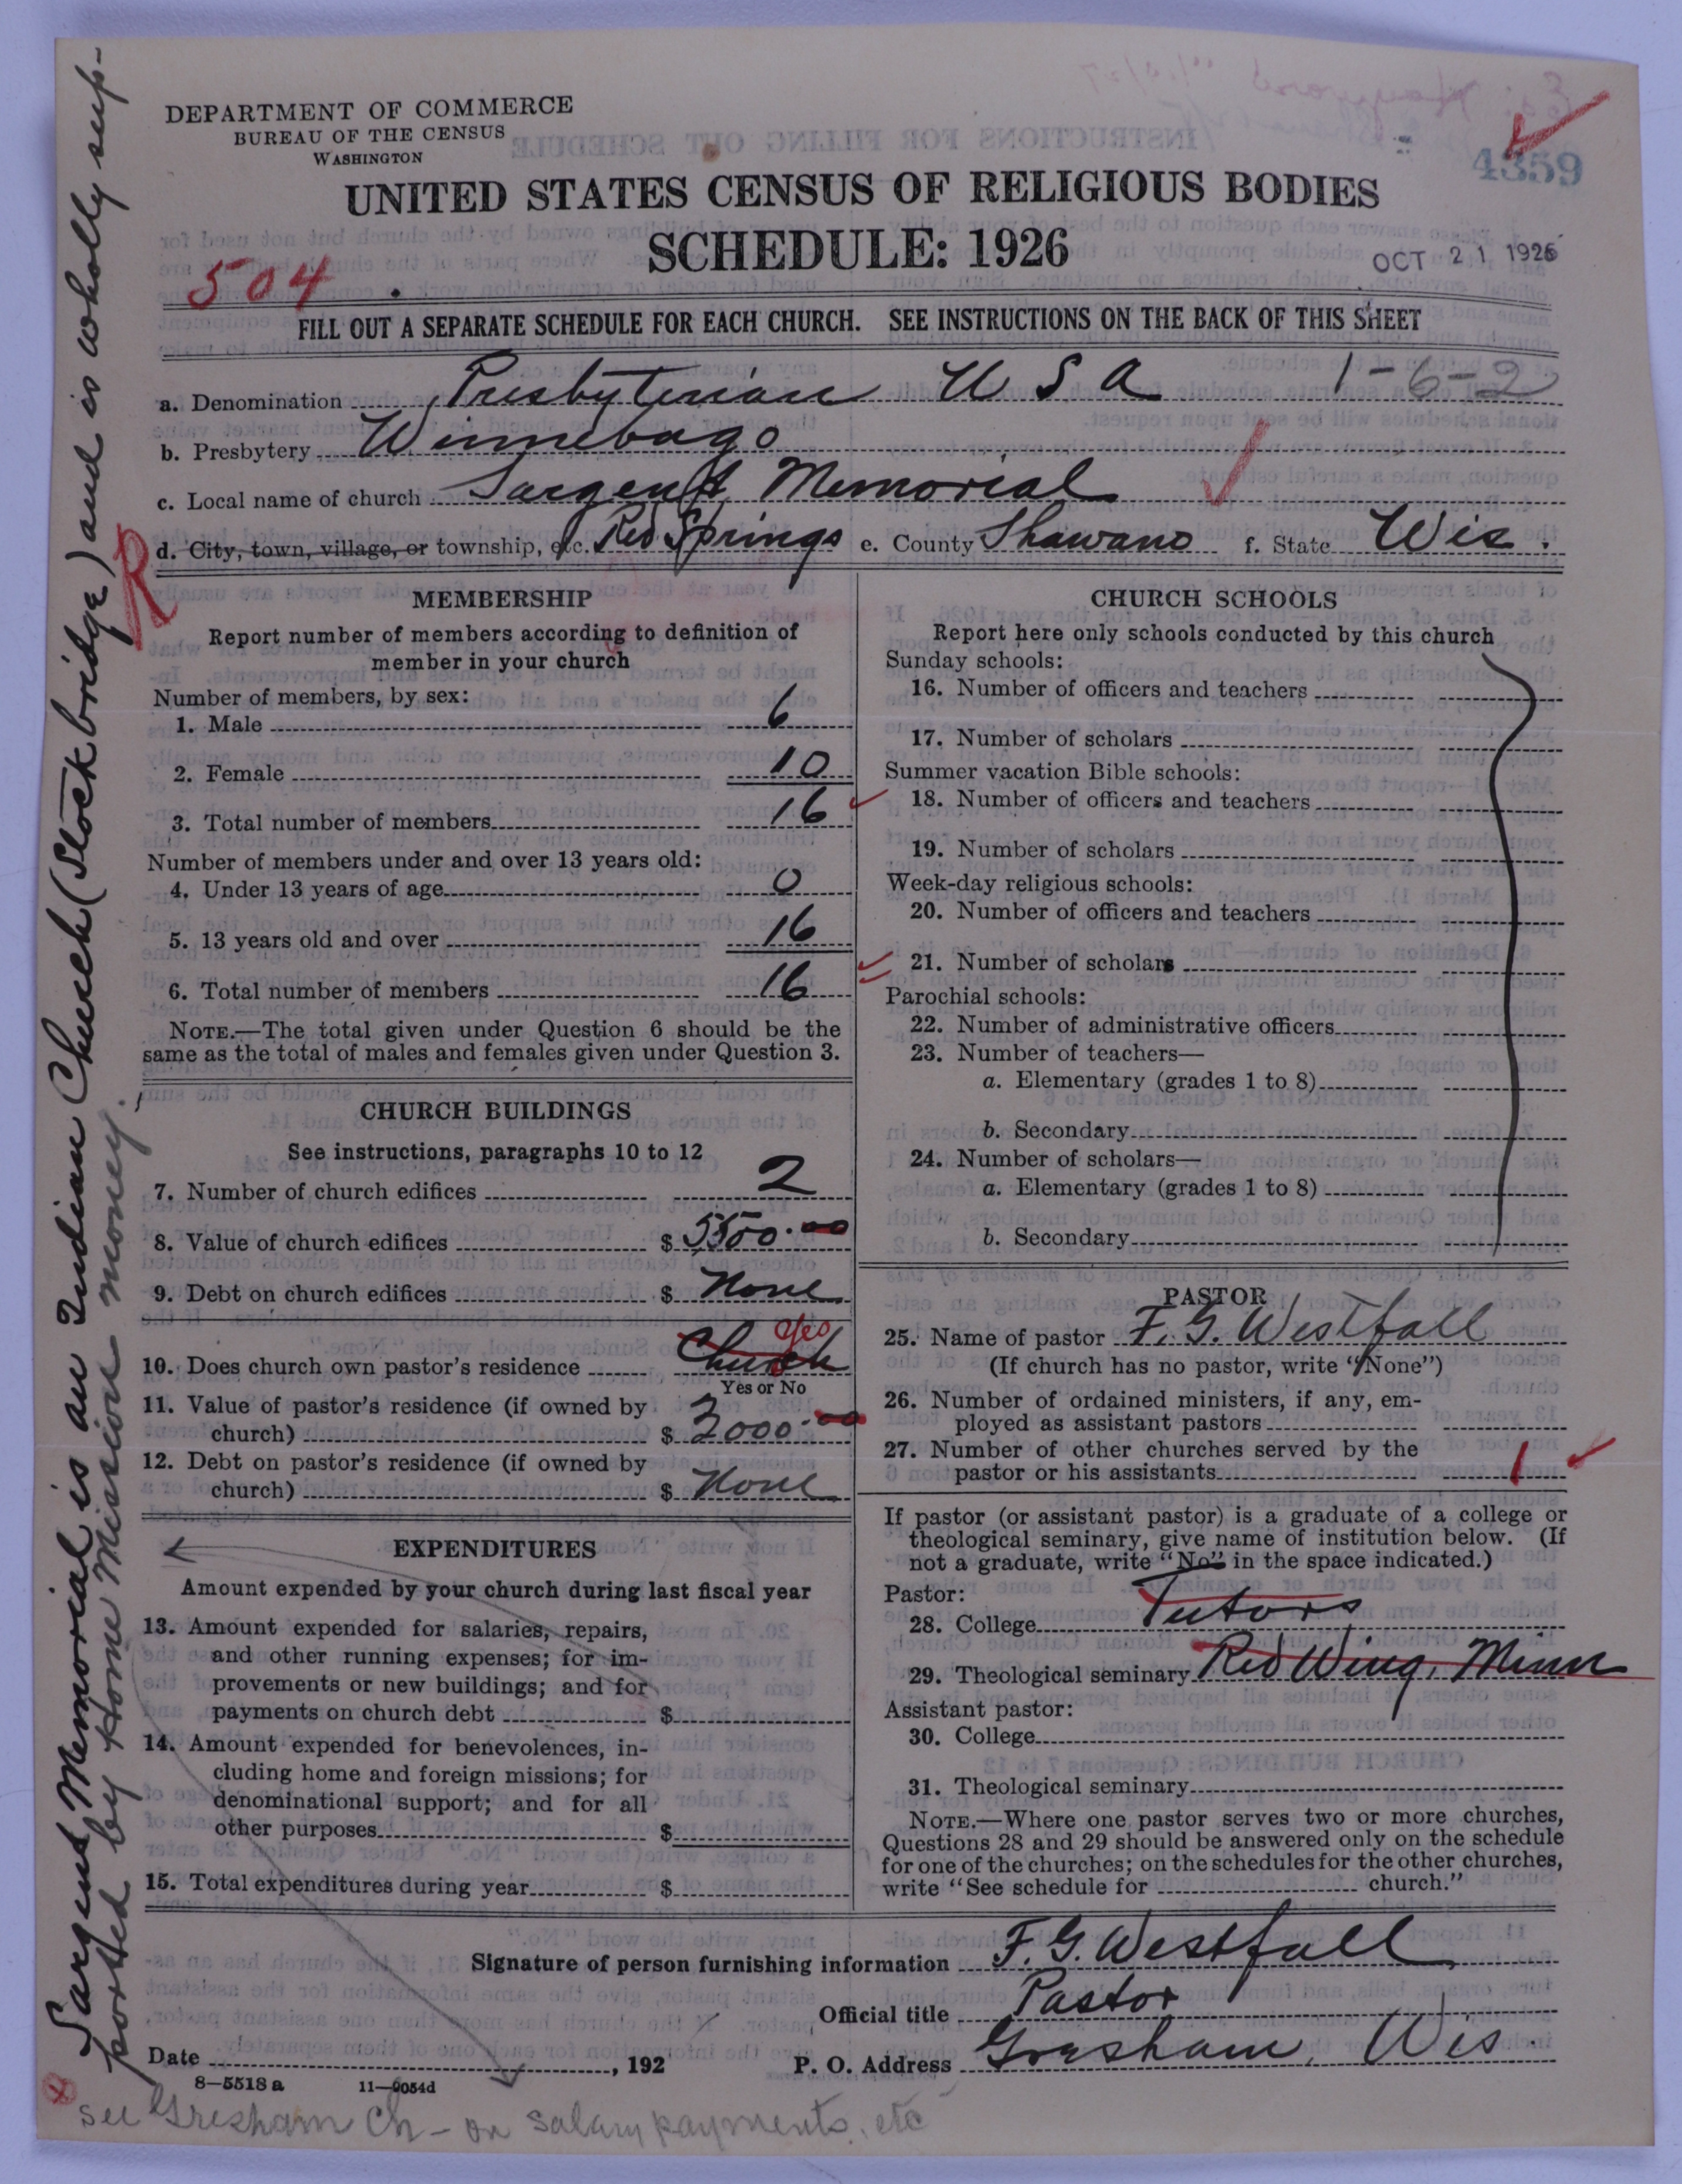 DEPARTMENT OF COMMERCE
BUREAU OF THE CENSUS
WASHINGTON
4359
UNITED STATES CENSUS OF RELIGIOUS BODIES
SCHEDULE: 1926
OCT 21 1926
504.
FILL OUT A SEPARATE SCHEDULE FOR EACH CHURCH. SEE INSTRUCTIONS ON THE BACK OF THIS SHEET
a. Denomination Presbyterian U S A 1-6-2
b. Presbytery Winnebago
c. Local name of church Sargent Memorial
R
d. City, town, village, or township, etc. Red Springs e. County Shawano f. State Wis.
MEMBERSHIP
Report number of members according to definition of
member in your church
Number of members, by sex:
1. Male 6
2. Female 10
3. Total number of members 16
Number of members under and over 13 years old:
4. Under 13 years of age 0
5. 13 years old and over 16
6. Total number of members 16
NOTE.—The total given under Question 6 should be the
same as the total of males and females given under Question 3.
CHURCH BUILDINGS
See instructions, paragraphs 10 to 12
7. Number of church edifices 2
8. Value of church edifices $ 5500.00
9. Debt on church edifices $ None
10. Does church own pastor's residence Church Yes
Yes or No
11. Value of pastor's residence (if owned by
church) $ 2000.00
12. Debt on pastor's residence (if owned by
church) $ None
EXPENDITURES
Amount expended by your church during last fiscal year
13. Amount expended for salaries, repairs,
and other running expenses; for im-
provements or new buildings; and for
payments on church debt $
14. Amount expended for benevolences, in-
cluding home and foreign missions; for
denominational support; and for all
other purposes $
15. Total expenditures during year $
CHURCH SCHOOLS
Report here only schools conducted by this church
Sunday schools:
16. Number of officers and teachers
17. Number of scholars
Summer vacation Bible schools:
18. Number of officers and teachers
19. Number of scholars
Week-day religious schools:
20. Number of officers and teachers
21. Number of scholars
Parochial schools:
22. Number of administrative officers
23. Number of teachers—
a. Elementary (grades 1 to 8)
b. Secondary
24. Number of scholars—
a. Elementary (grades 1 to 8)
b. Secondary
PASTOR
25. Name of pastor F. G. Westfall
(If church has no pastor, write "None")
26. Number of ordained ministers, if any, em-
ployed as assistant pastors
27. Number of other churches served by the
pastor or his assistants 1
If pastor (or assistant pastor) is a graduate of a college or
theological seminary, give name of institution below. (If
not a graduate, write "No" in the space indicated.)
Pastor:
28. College Tutors
29. Theological seminary Red Wing, Minn
Assistant pastor:
30. College
31. Theological seminary
NOTE.—Where one pastor serves two or more churches,
Questions 28 and 29 should be answered only on the schedule
for one of the churches; on the schedules for the other churches,
write "See schedule for church."
Signature of person furnishing information F. G. Westfall
Official title Pastor
Date , 192 P. O. Address Gresham, Wis.
8—5518 a 11—9054d
see Gresham Ch - on salary payments, etc
Sargent Memorial is an Indian Church (Stockbridge) and is wholly sup-
ported by Home Mission money.